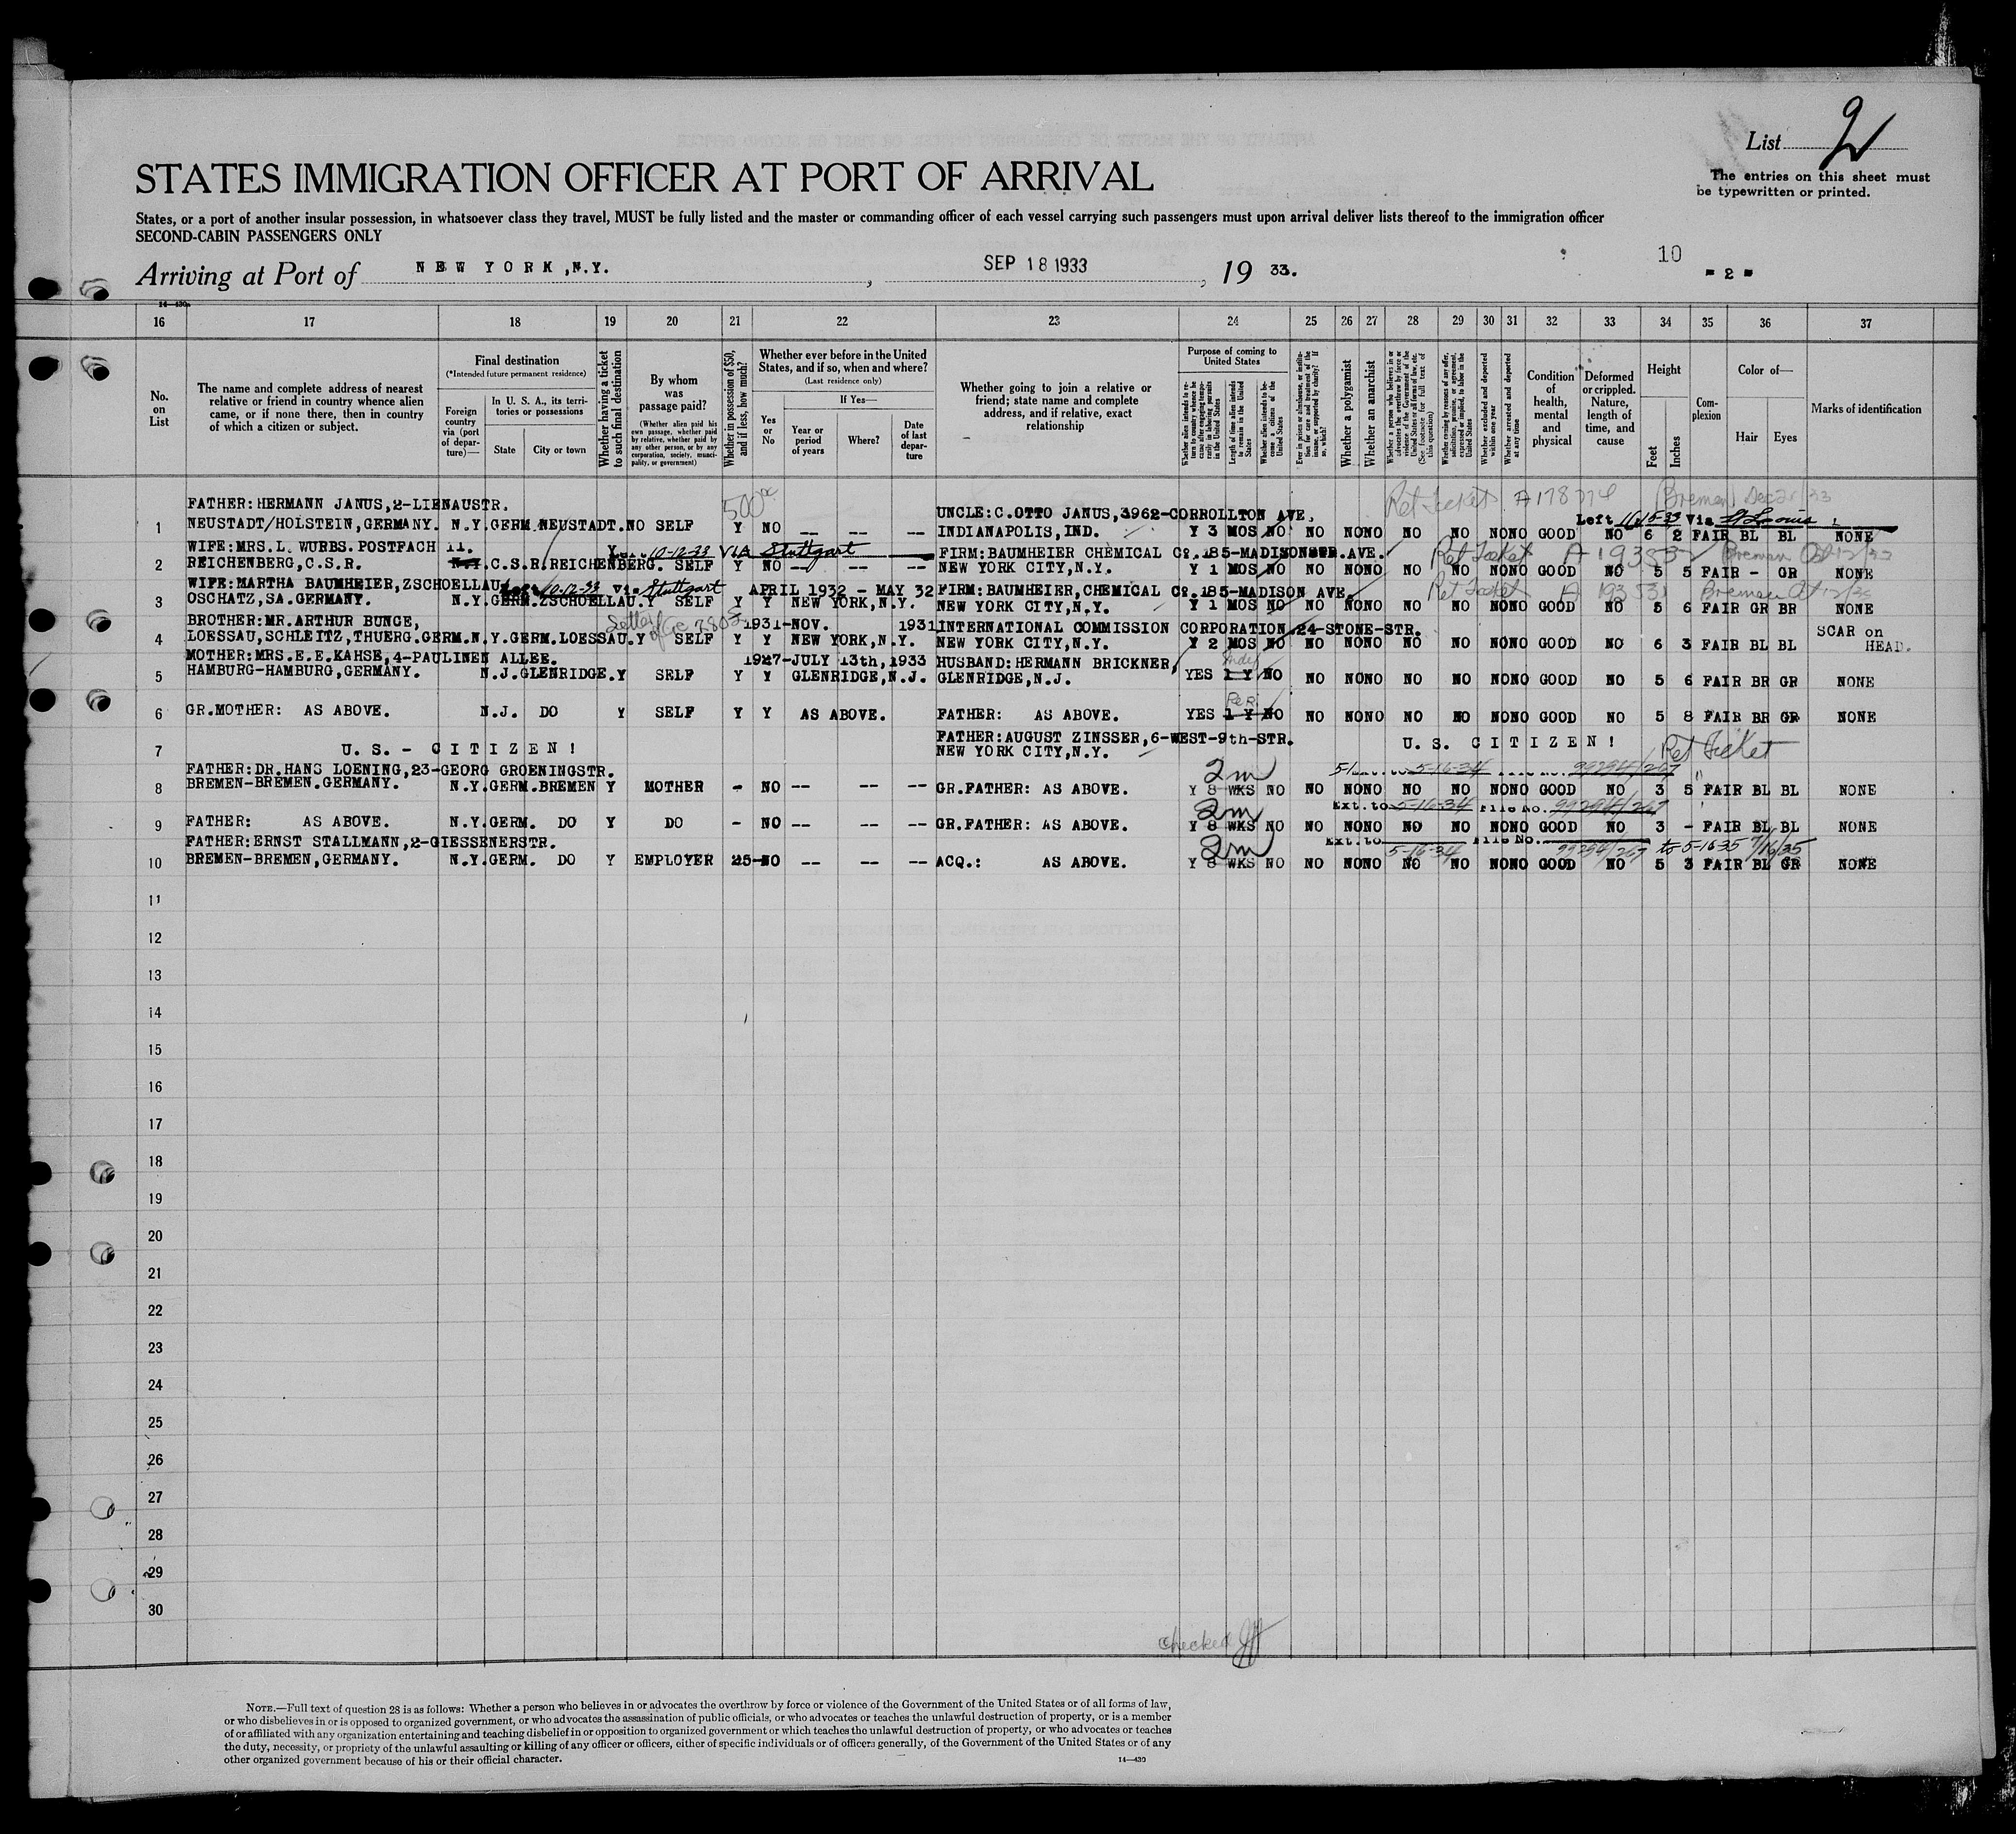 List 2
The entries on this sheet must
be typewritten or printed.
STATES IMMIGRATION OFFICER AT PORT OF ARRIVAL
States, or a port of another insular possession, in whatsoever class they travel, MUST be fully listed and the master or commanding officer of each vessel carrying such passengers must upon arrival deliver lists thereof to the immigration officer
SECOND-CABIN PASSENGERS ONLY
Arriving at Port of NEW YORK, N.Y., SEP 18 1933, 19 33.
10
- 2 -
14-430
16 17 18 19 20 21 22 23 24 25 26 27 28 29 30 31 32 33 34 35 36 37
No. on List
The name and complete address of nearest relative or friend in country whence alien came, or if none there, then in country of which a citizen or subject.
Final destination
(*Intended future permanent residence)
Foreign country via (port of departure)—
In U. S. A., its territories or possessions
State
City or town
Whether having a ticket to such final destination
By whom was passage paid?
(Whether alien paid his own passage, whether paid by relative, whether paid by any other person, or by any corporation, society, municipality, or government)
Whether in possession of $50, and if less, how much?
Whether ever before in the United States, and if so, when and where?
(Last residence only)
Yes or No
If Yes—
Year or period of years
Where?
Date of last departure
Whether going to join a relative or friend; state name and complete address, and if relative, exact relationship
Purpose of coming to United States
Whether alien intends to return to country whence he came after engaging temporarily in laboring pursuits in the United States
Length of time alien intends to remain in the United States
Whether alien intends to become a citizen of the United States
Ever in prison or almshouse, or institution for care and treatment of the insane, or supported by charity? If so, which?
Whether a polygamist
Whether an anarchist
Whether a person who believes in or advocates the overthrow by force or violence of the Government of the United States or all forms of law, etc. (See footnote for full text of this question)
Whether coming by reason of any offer, solicitation, promise, or agreement, expressed or implied, to labor in the United States
Whether excluded and deported within one year
Whether arrested and deported at any time
Condition of health, mental and physical
Deformed or crippled. Nature, length of time, and cause
Height
Feet
Inches
Complexion
Color of—
Hair
Eyes
Marks of identification
500
Ret Ticket A178774 Bremen Dec
FATHER: HERMANN JANUS, 2-LIENAUSTR. UNCLE: C. OTTO JANUS, 3962-CORROLLTON AVE, Left 11-15-33 Via St Louis
1 NEUSTADT/HOLSTEIN, GERMANY. N.Y. GERM. NEUSTADT. NO SELF Y NO -- -- -- INDIANAPOLIS, IND. Y 3 MOS NO NO NO NO NO NO NO NO GOOD NO 6 2 FAIR BL BL NONE
WIFE: MRS. L. WURBS. POSTFACH 11. Y 10-12-33 VIA Stuttgart FIRM: BAUMHEIER CHEMICAL Co. 185-MADISON AVE. Ret Ticket A 19353 Bremen Oct 12/33
2 REICHENBERG, C.S.R. N.Y. C.S.R. REICHENBERG. SELF Y NO -- -- -- NEW YORK CITY, N.Y. Y 1 MOS NO NO NO NO NO NO NO NO GOOD NO 5 5 FAIR - GR NONE
WIFE: MARTHA BAUMHEIER, ZSCHOELLAU 10-12-33 Via Stuttgart APRIL 1932 - MAY 32 FIRM: BAUMHEIER, CHEMICAL Co. 185-MADISON AVE. Ret Ticket A 193531 Bremen
3 OSCHATZ, SA. GERMANY. N.Y. GERM. ZSCHOELLAU. Y SELF Y Y NEW YORK, N.Y. NEW YORK CITY, N.Y. Y 1 MOS NO NO NO NO NO NO NO NO GOOD NO 5 6 FAIR GR BR NONE
BROTHER: MR. ARTHUR BUNGE, Letter of 1931-NOV. 1931 INTERNATIONAL COMMISSION CORPORATION 24-STONE-STR. SCAR on
4 LOESSAU, SCHLEITZ, THUERG. GERM. N.Y. GERM. LOESSAU. Y SELF Y Y NEW YORK, N.Y. NEW YORK CITY, N.Y. Y 2 MOS NO NO NO NO NO NO NO NO GOOD NO 6 3 FAIR BL BL HEAD.
MOTHER: MRS. E. E. KAHSE, 4-PAULINEN ALLEE. 1927-JULY 13th, 1933 HUSBAND: HERMANN BRICKNER, Indef
5 HAMBURG-HAMBURG, GERMANY. N.J. GLENRIDGE. Y SELF Y Y GLENRIDGE, N.J. GLENRIDGE, N.J. YES 1 Y NO NO NO NO NO NO NO NO GOOD NO 5 6 FAIR BR GR NONE
Per.
6 GR. MOTHER: AS ABOVE. N.J. DO Y SELF Y Y AS ABOVE. FATHER: AS ABOVE. YES 1 Y NO NO NO NO NO NO NO NO GOOD NO 5 8 FAIR BR GR NONE
FATHER: AUGUST ZINSSER, 6-WEST-9th-STR.
7 U. S. - CITIZEN! NEW YORK CITY, N.Y. U. S. CITIZEN! Ret Ticket
FATHER: DR. HANS LOENING, 23-GEORG GROENINGSTR. 2m 5-16-34 99294/267
8 BREMEN-BREMEN. GERMANY. N.Y. GERM. BREMEN Y MOTHER - NO -- -- -- GR. FATHER: AS ABOVE. Y 8 WKS NO NO NO NO NO NO NO NO GOOD NO 3 5 FAIR BL BL NONE
2m Ext. to 5-16-34 File No. 99294/267
9 FATHER: AS ABOVE. N.Y. GERM. DO Y DO - NO -- -- -- GR. FATHER: AS ABOVE. Y 8 WKS NO NO NO NO NO NO NO NO GOOD NO 3 - FAIR BL BL NONE
FATHER: ERNST STALLMANN, 2-GIESSENERSTR. 2m Ext. to 5-16-34 File No. 99294/267 to 5-16 35 7/16/35
10 BREMEN-BREMEN, GERMANY. N.Y. GERM. DO Y EMPLOYER 25- NO -- -- -- ACQ.: AS ABOVE. Y 8 WKS NO NO NO NO NO NO NO NO GOOD NO 5 3 FAIR BL GR NONE
11
12
13
14
15
16
17
18
19
20
21
22
23
24
25
26
27
28
29
30
checked
NOTE.—Full text of question 28 is as follows: Whether a person who believes in or advocates the overthrow by force or violence of the Government of the United States or of all forms of law,
or who disbelieves in or is opposed to organized government, or who advocates the assassination of public officials, or who advocates or teaches the unlawful destruction of property, or is a member
of or affiliated with any organization entertaining and teaching disbelief in or opposition to organized government or which teaches the unlawful destruction of property, or who advocates or teaches
the duty, necessity, or propriety of the unlawful assaulting or killing of any officer or officers, either of specific individuals or of officers generally, of the Government of the United States or of any
other organized government because of his or their official character.
14-430